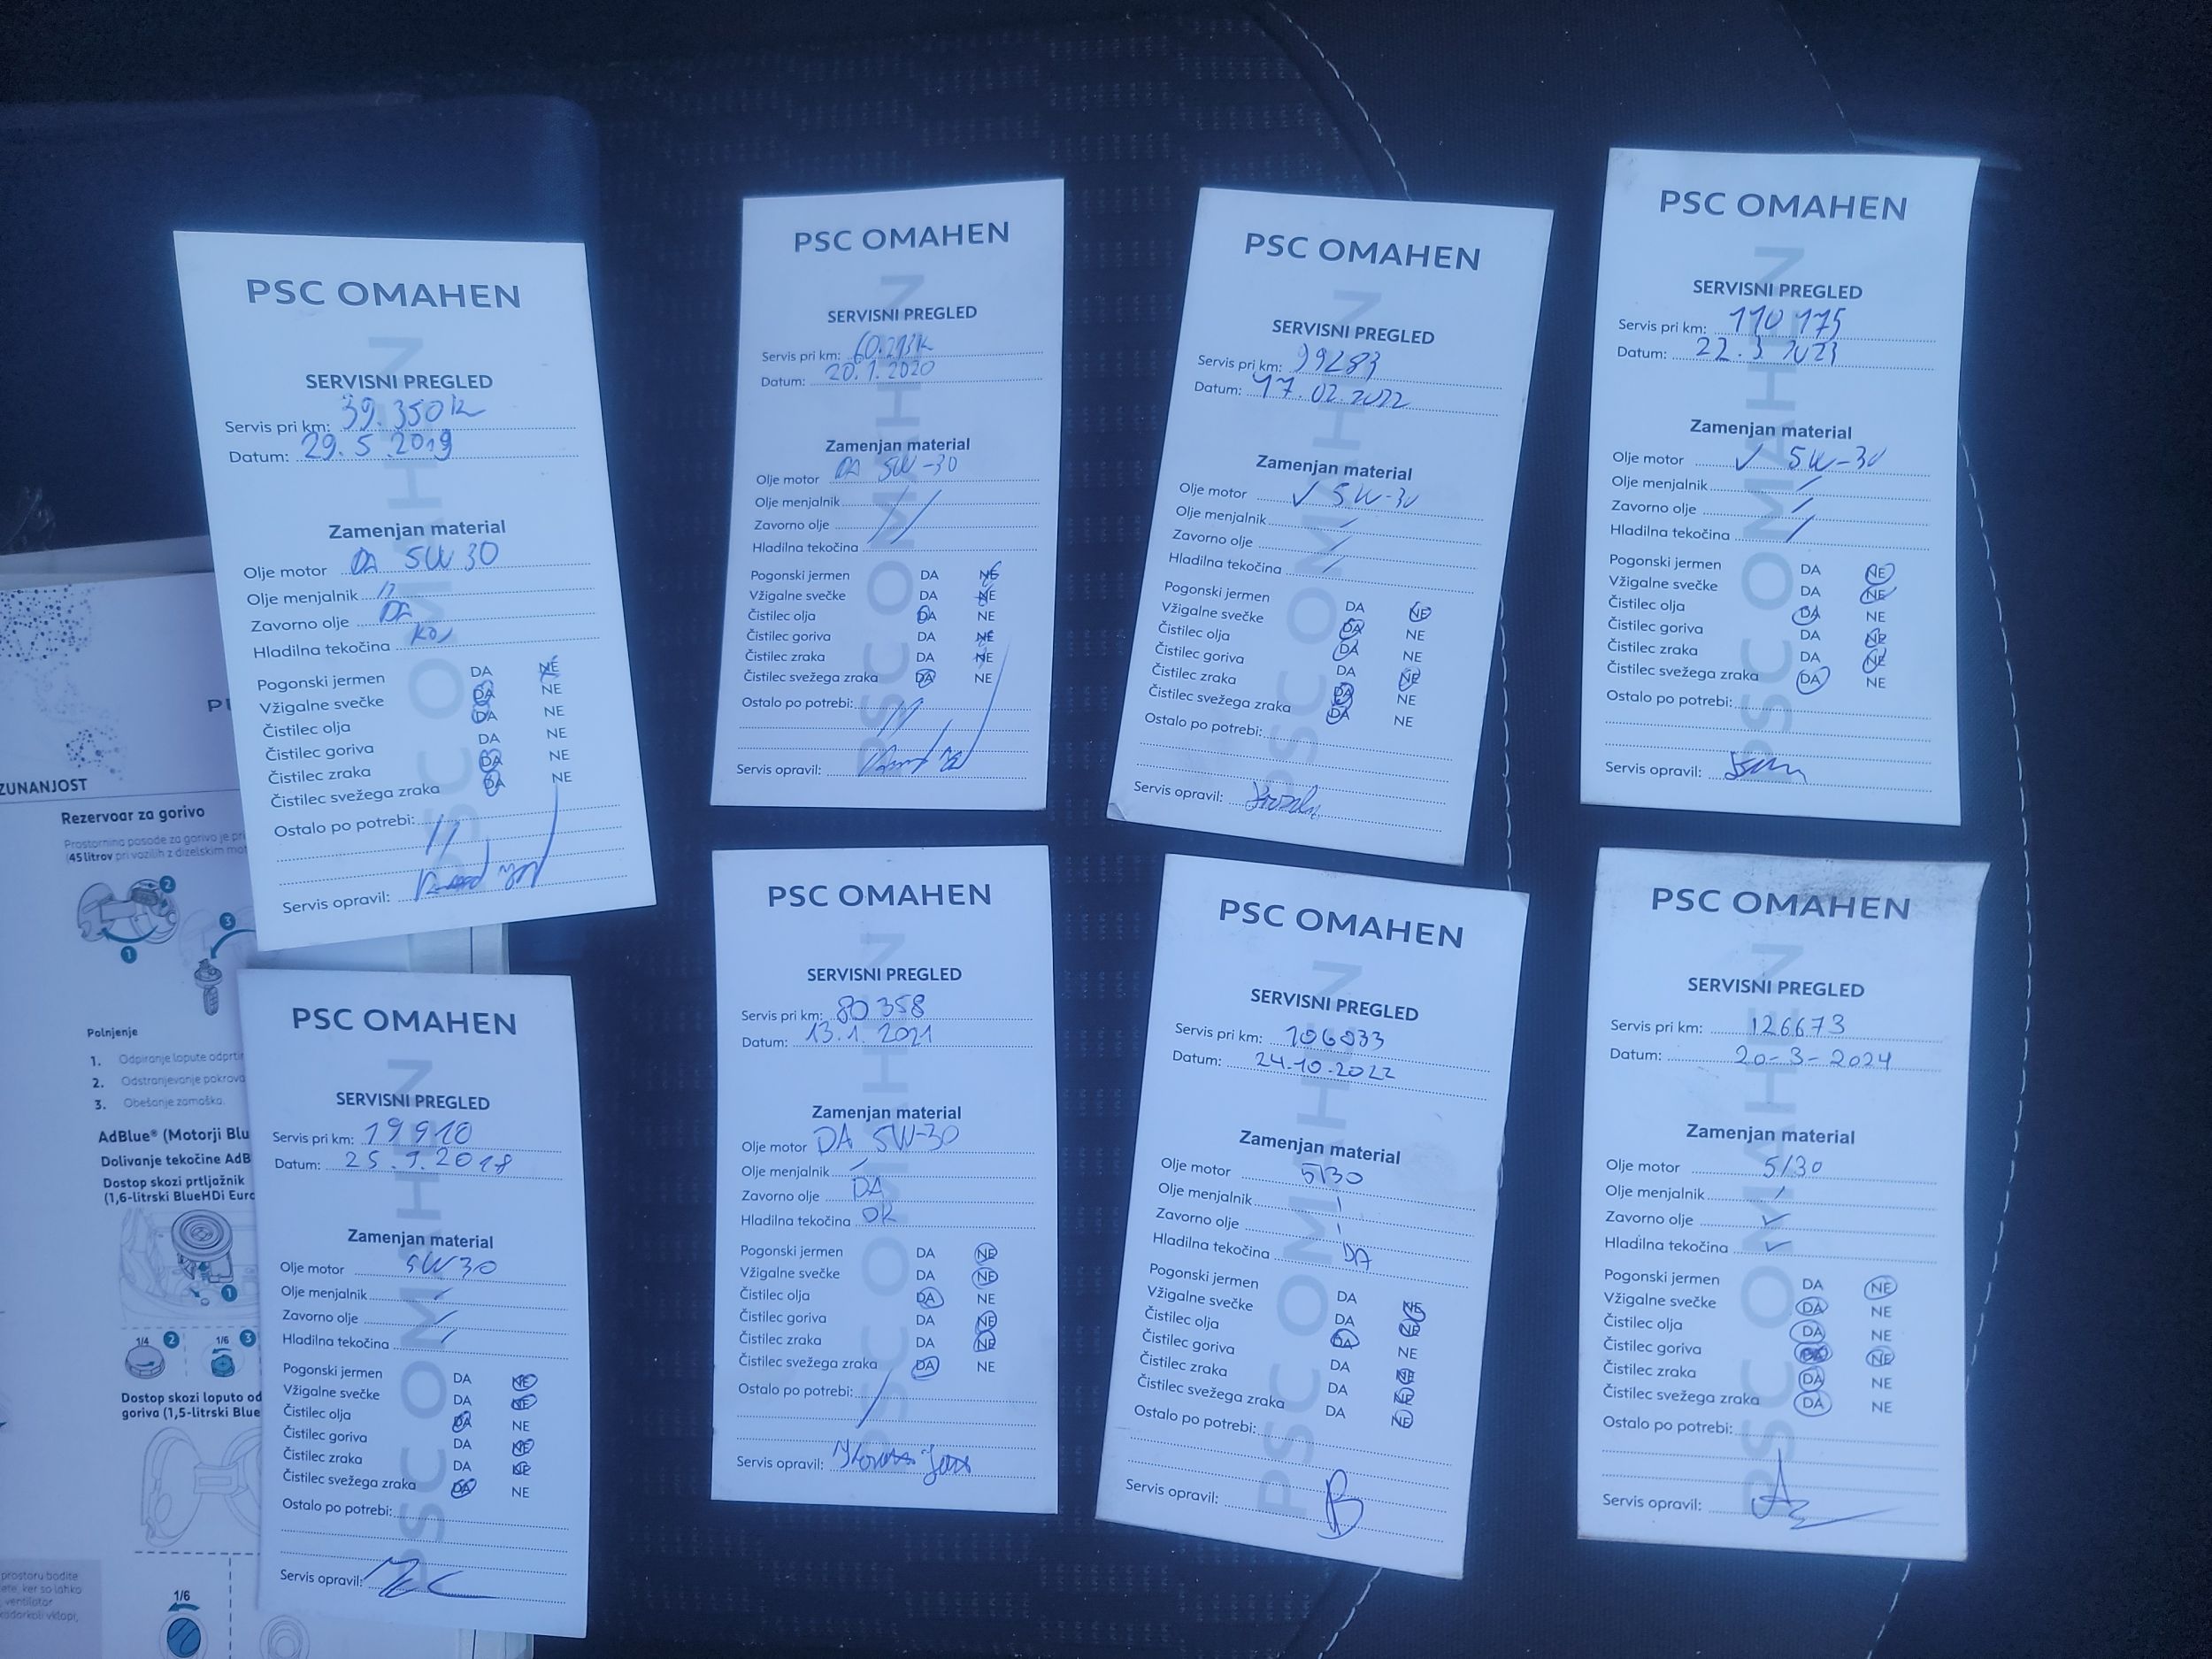 PSC OMAHEN
SERVISNI PREGLED
Servis pri km: 39.350 k
Datum: 29.5.2019
Zamenjan material
Olje motor DA 5W30
Olje menjalnik //
Zavorno olje DA
Hladilna tekočina
Pogonski jermen DA NE
Vžigalne svečke DA NE
Čistilec olja DA NE
Čistilec goriva DA NE
Čistilec zraka DA NE
Čistilec svežega zraka DA NE
Ostalo po potrebi: //
Servis opravil:
PSC OMAHEN
SERVISNI PREGLED
Servis pri km:
Datum: 20.1.2020
Zamenjan material
Olje motor DA 5W-30
Olje menjalnik /
Zavorno olje /
Hladilna tekočina
Pogonski jermen DA NE
Vžigalne svečke DA NE
Čistilec olja DA NE
Čistilec goriva DA NE
Čistilec zraka DA NE
Čistilec svežega zraka DA NE
Ostalo po potrebi: //
Servis opravil:
PSC OMAHEN
SERVISNI PREGLED
Servis pri km: 99283
Datum: 17.02.2022
Zamenjan material
Olje motor ✓ 5W-30
Olje menjalnik /
Zavorno olje /
Hladilna tekočina /
Pogonski jermen DA NE
Vžigalne svečke DA NE
Čistilec olja DA NE
Čistilec goriva DA NE
Čistilec zraka DA NE
Čistilec svežega zraka DA NE
Ostalo po potrebi:
Servis opravil:
PSC OMAHEN
SERVISNI PREGLED
Servis pri km: 110 175
Datum: 22.3 2023
Zamenjan material
Olje motor ✓ 5W-30
Olje menjalnik /
Zavorno olje /
Hladilna tekočina /
Pogonski jermen DA NE
Vžigalne svečke DA NE
Čistilec olja DA NE
Čistilec goriva DA NE
Čistilec zraka DA NE
Čistilec svežega zraka DA NE
Ostalo po potrebi:
Servis opravil:
PSC OMAHEN
SERVISNI PREGLED
Servis pri km: 19910
Datum: 25.9.2018
Zamenjan material
Olje motor 5W30
Olje menjalnik /
Zavorno olje /
Hladilna tekočina /
Pogonski jermen DA NE
Vžigalne svečke DA NE
Čistilec olja DA NE
Čistilec goriva DA NE
Čistilec zraka DA NE
Čistilec svežega zraka DA NE
Ostalo po potrebi:
Servis opravil:
PSC OMAHEN
SERVISNI PREGLED
Servis pri km: 80 358
Datum: 13.1.2021
Zamenjan material
Olje motor DA 5W-30
Olje menjalnik /
Zavorno olje DA
Hladilna tekočina OK
Pogonski jermen DA NE
Vžigalne svečke DA NE
Čistilec olja DA NE
Čistilec goriva DA NE
Čistilec zraka DA NE
Čistilec svežega zraka DA NE
Ostalo po potrebi: /
Servis opravil:
PSC OMAHEN
SERVISNI PREGLED
Servis pri km: 106033
Datum: 24.10.2022
Zamenjan material
Olje motor 5/30
Olje menjalnik /
Zavorno olje /
Hladilna tekočina DA
Pogonski jermen DA NE
Vžigalne svečke DA NE
Čistilec olja DA NE
Čistilec goriva DA NE
Čistilec zraka DA NE
Čistilec svežega zraka DA NE
Ostalo po potrebi:
Servis opravil:
PSC OMAHEN
SERVISNI PREGLED
Servis pri km: 126673
Datum: 20-3-2024
Zamenjan material
Olje motor 5/30
Olje menjalnik /
Zavorno olje ✓
Hladilna tekočina ✓
Pogonski jermen DA NE
Vžigalne svečke DA NE
Čistilec olja DA NE
Čistilec goriva DA NE
Čistilec zraka DA NE
Čistilec svežega zraka DA NE
Ostalo po potrebi:
Servis opravil:
ZUNANJOST
Rezervoar za gorivo
Prostornina posode za gorivo je
(45 litrov pri vozilih z dizelskim
Polnjenje
1. Odpiranje lopute
2. Odstranjevanje
3. Obešanje zamaška.
AdBlue® (Motorji
Dolivanje tekočine
Dostop skozi prtljažnik
(1,6-litrski BlueHDi
1/4 2 1/6 3
Dostop skozi loputo od
goriva (1,5-litrski
prostoru bodite
ker so lahko
ventilator
vklopi,
1/6